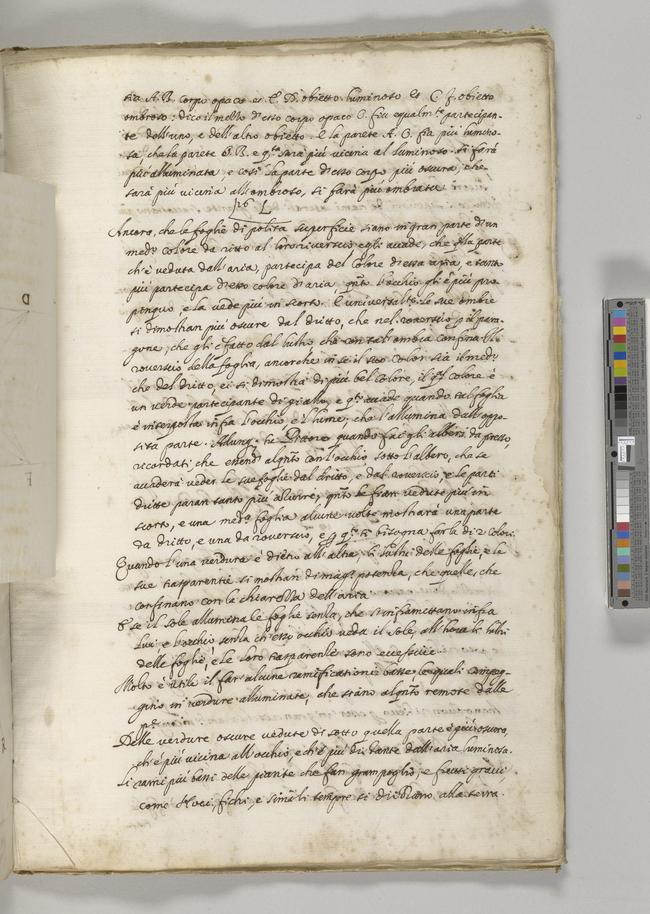 sia A. B. corpo opaco et E. D. obietto luminoso et C. F. obietto
ombroso: dico il mezzo d'esso corpo opaco O. fia equalm.te partecipan-
te dell'uno, e dell'altro obietto. E la parete A. O. fia più lumino-
sa, che la parete O. B. e q.to sarà più vicina al luminoso si farà
più alluminata, e così la parte d'esso corpo più oscura, che
sarà più vicina all'ombroso, si farà più ombrata
L
Ancora, che le foglie di polita superficie siano in gran parte d'un
med.o colore da ritto al loro riverscio egli accade, che
ch'è veduta dall'aria, partecipa del colore d'essa aria, e tanto
più partecipa d'esso colore di aria, q.nto l'occhio gli è più pro-
pinquo, e la vede più in scorto. E universalm.te le sue ombre
si dimostran più oscure dal dritto, che nel roverscio p il para-
gone, che gli è fatto dal lustro, che con tali ombra confina. Il
roverscio della foglia, ancorchè in se il suo color sia il med.o
che del dritto, ei si dimostra di più bel colore, il q.l colore è
un verde partecipante di giallo, e q.to accade quando tal foglia
è interposta infra l'occhio, e 'l lume, che l'allumina dall'oppo-
sita parte. Adunq. tu Pittore quando fai gli alberi da presso,
ricordati, che essend' alq.nto con l'occhio sotto l'albero, che se
accaderà veder le sue foglie dal dritto, e dal roverscio, e le parti
dritte paran tanto più azzurre, q.nto le fian vedute più in
scorto, e una med.a foglia alcune volte mostrarà una parte
da dritto, e una da roverscio, e p q.to ti bisogna farla di 2 colori.
Quando l'una verdura è dietro all'altra, li lustri delle foglie, e le
sue trasparentie si mostran di mag.r potenza, che quelle, che
confinano con la chiarezza dell'aria
E se il sole allumina le foglie senza, che s'inframettano infra
lui e l'occhio senza ch'esso occhio veda il sole, all'hora li lustri
delle foglie, e le loro trasparenze sono eccessive
Molto è utile il far alcune ramificationi basse, le quali campeg-
gino in verdure alluminate, che stiano alq.nto remote dalle
p.e
Delle verdure oscure vedute di sotto quella parte è più oscura,
ch'è più vicina all'occhio, e ch'è più distante dall'aria luminosa.
Li rami più bassi delle piante che fan gran foglie, e frutti gravi
come Noci, fichi, e simili sempre si dirizzano alla terra.
D